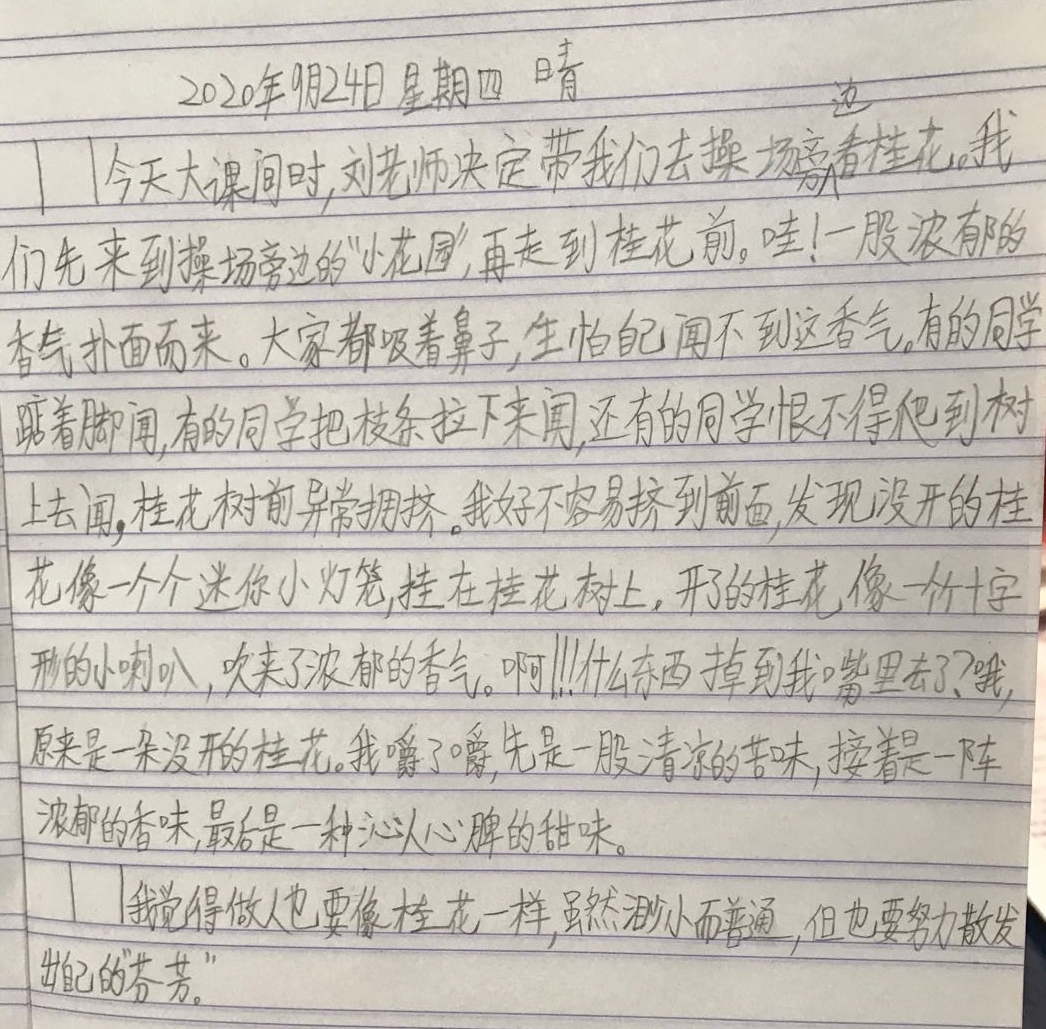 2020年9月24日 星期四 晴
今天大课间时,刘老师决定带我们去操场旁边看桂花。我
们先来到操场旁边的“小花园”,再走到桂花前。哇!一股浓郁的
香气扑面而来。大家都吸着鼻子,生怕自己闻不到这香气。有的同学
踮着脚闻,有的同学把枝条拉下来闻,还有的同学恨不得爬到树
上去闻,桂花树前异常拥挤。我好不容易挤到前面,发现没开的桂
花像一个个迷你小灯笼,挂在桂花树上。开了的桂花,像一个个十字
形的小喇叭,吹来了浓郁的香气。啊!!!什么东西掉到我嘴里去了?哦,
原来是一朵没开的桂花。我嚼了嚼,先是一股清凉的苦味,接着是一阵
浓郁的香味,最后是一种沁人心脾的甜味。
我觉得做人也要像桂花一样,虽然渺小而普通,但也要努力散发
出自己的“芬芳。”